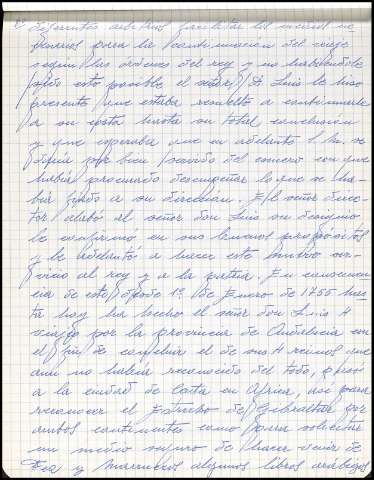 diferentes arbitrios facilitar los medios ne
cesarios para la continuacion del viaje
segun las órdenes del rey y no habiéndole
sido esto posible el señor D. Luis le hizo
presente que estaba resuelto a continuarle
a su costa hasta su total conclusion
y que esperaba que en adelante S. M. se
diera por bien servido del esmero con que
habia procurado desempeñar lo que se ha-
bia fiado a su direccion. El señor direc-
tor alabó al señor don Luis su designio
le confirmó en sus buenos propósitos
y le adelantó a hacer este nuevo ser-
vicio al rey y a la patria. En consecuen-
cia de esto desde 1º de Enero de 1755 has-
ta hoy ha hecho el señor don Luis 4
viajes por la provincia de Andalucia con
el fin de concluir el de sus 4 reinos que
aun no habia reconocido del todo, pasó
a la ciudad de Ceuta en Africa, asi para
reconocer el Estrecho de Gibraltar por
ambos continentes como para solicitar
un medio seguro de hacer venir de
Fez y Marruecos algunos libros arábigos